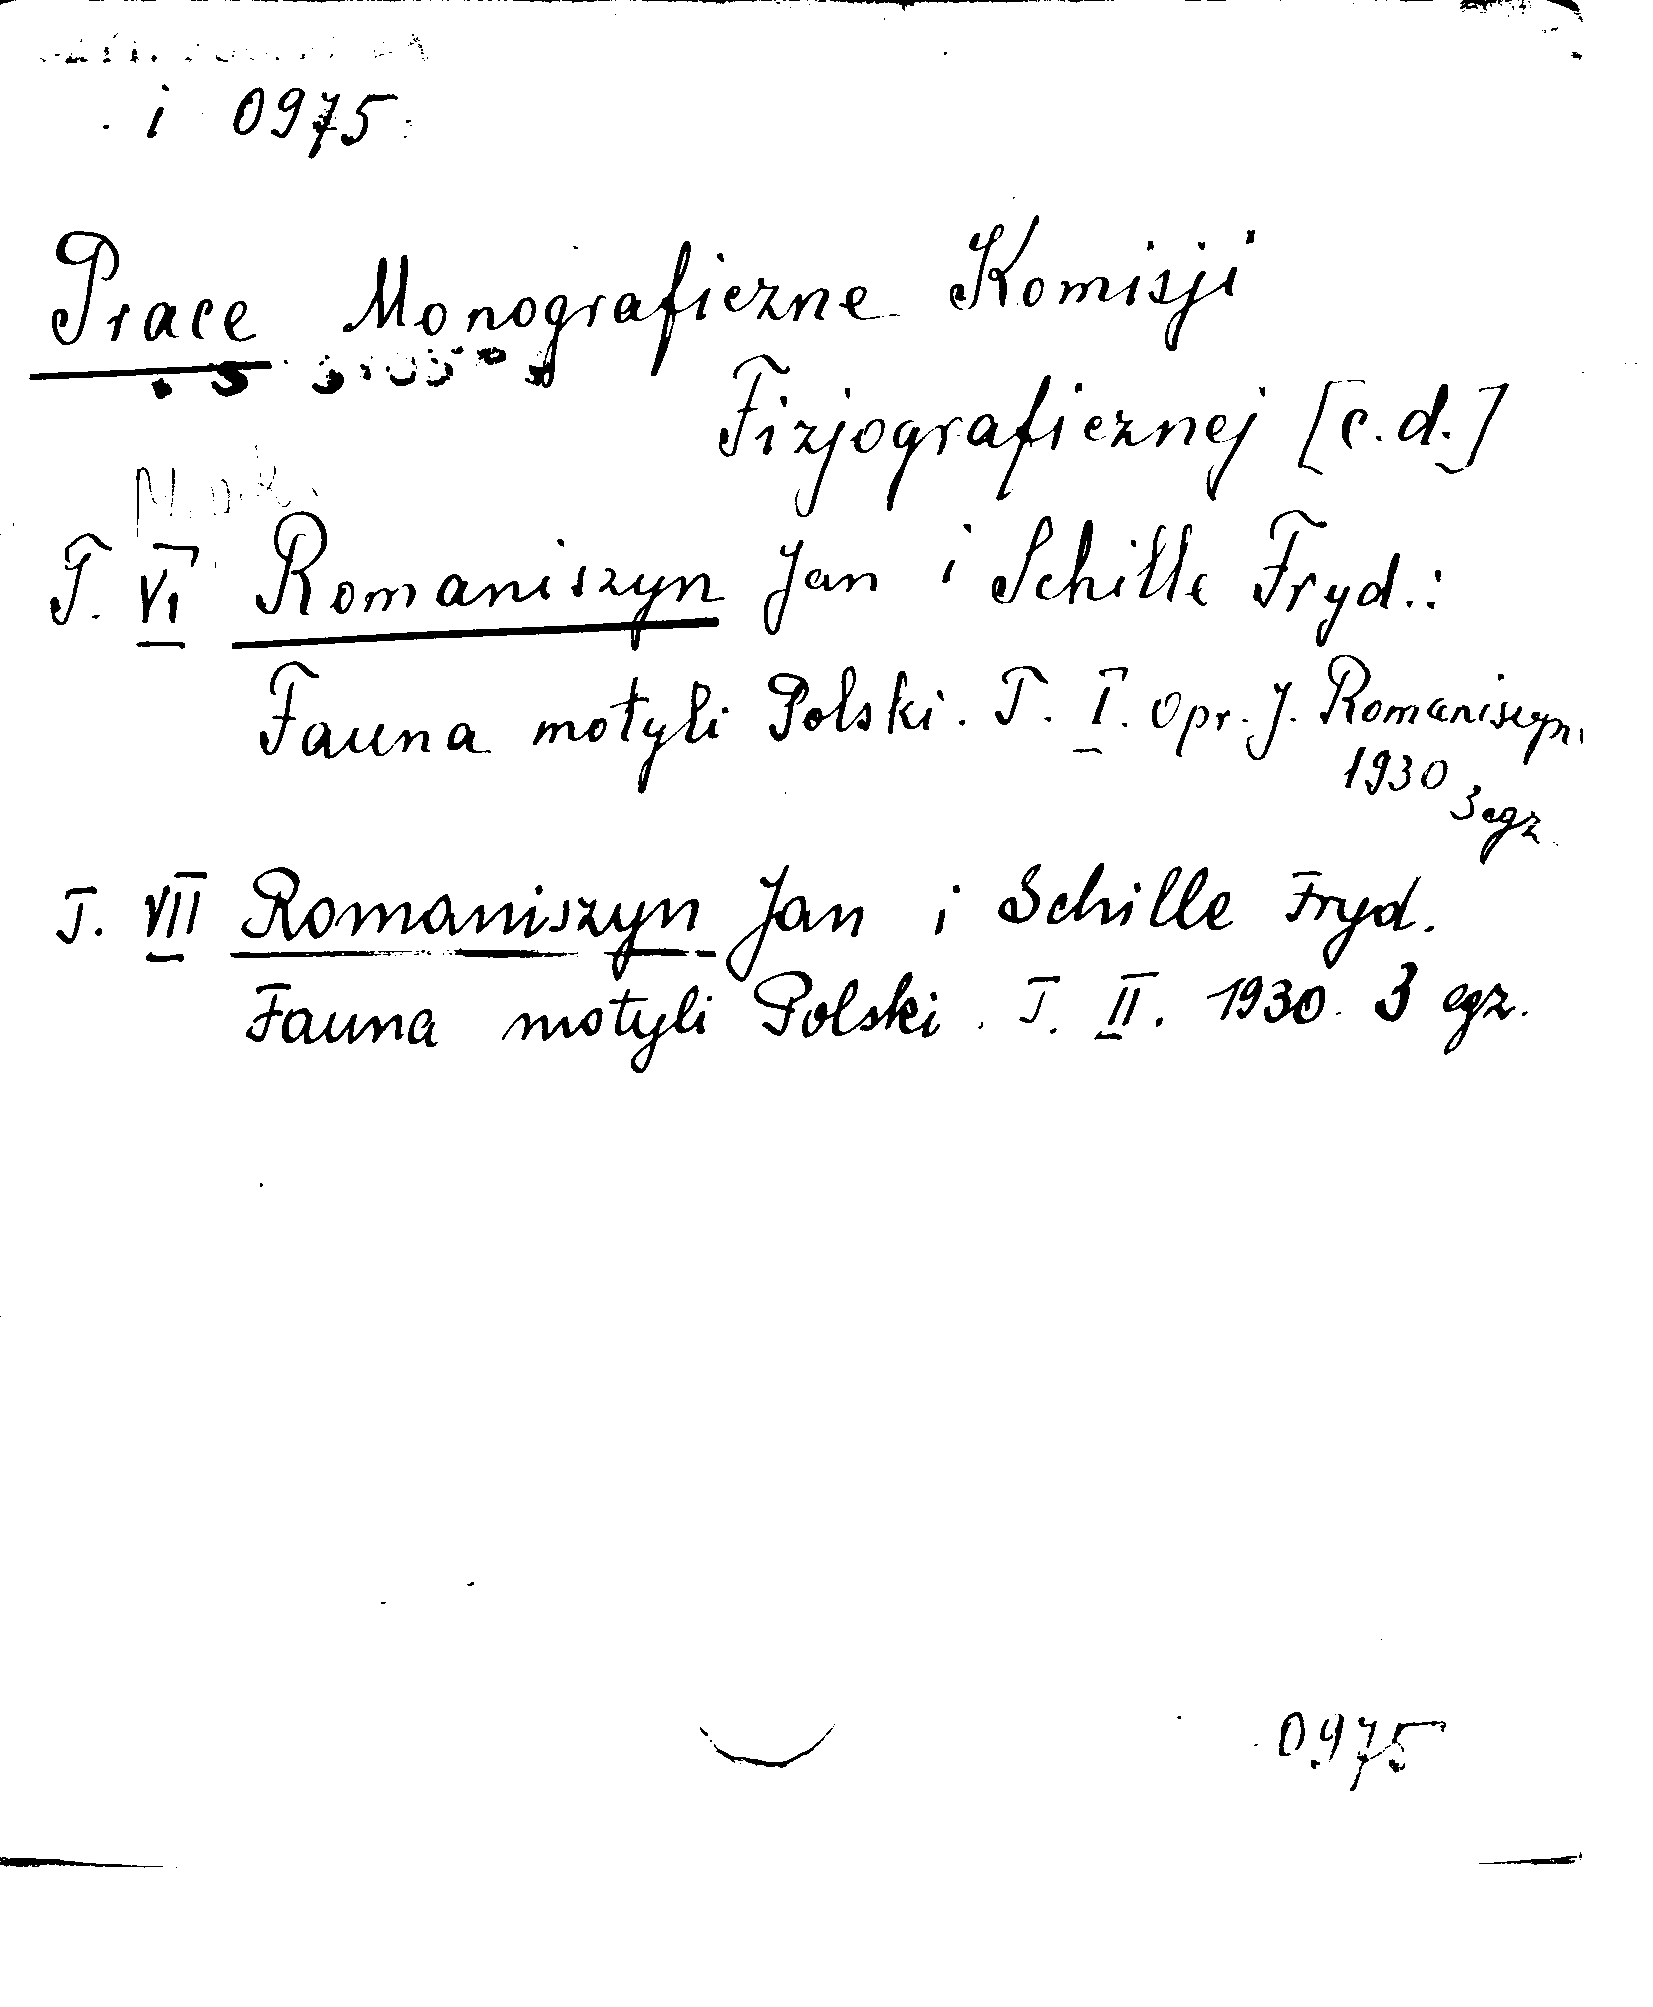 i 0975
Prace Monograficzne Komisji
Fizjograficznej [c.d.]
T. VI Romaniszyn Jan i Schille Fryd.:
Fauna motyli Polski. T. I. Opr. J. Romaniszyn.
1930 3 egz
T. VII Romaniszyn Jan i Schille Fryd.
Fauna motyli Polski. T. II. 1930. 3 egz.
0975